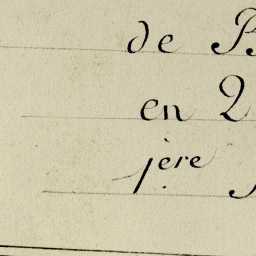 de B
en 2
1ère